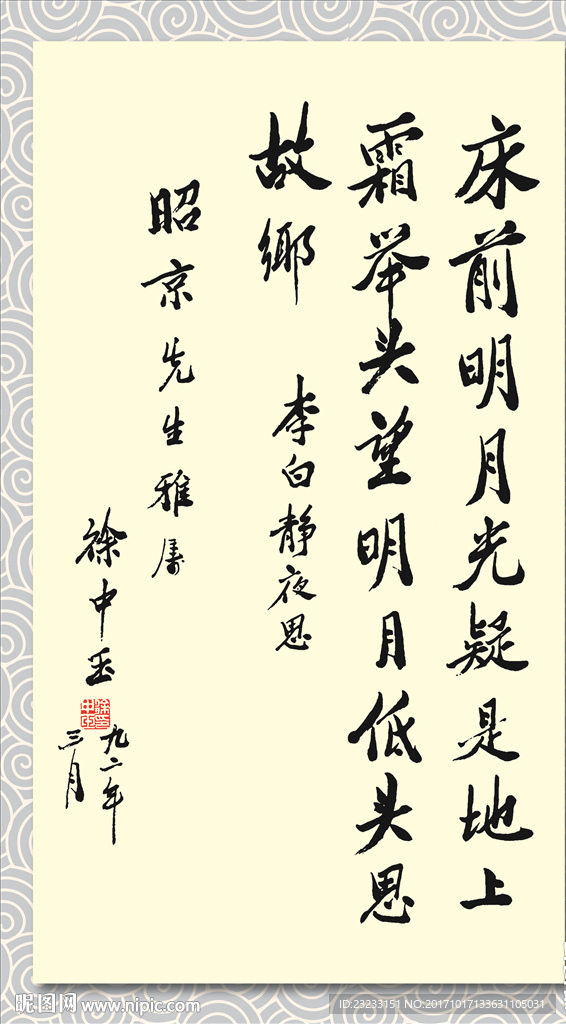 床前明月光疑是地上
霜举头望明月低头思
故乡
李白静夜思
昭京先生雅属
徐中玉
九二年
三月
昵图网 www.nipic.com
ID:23233151 NO:20171017133631105031